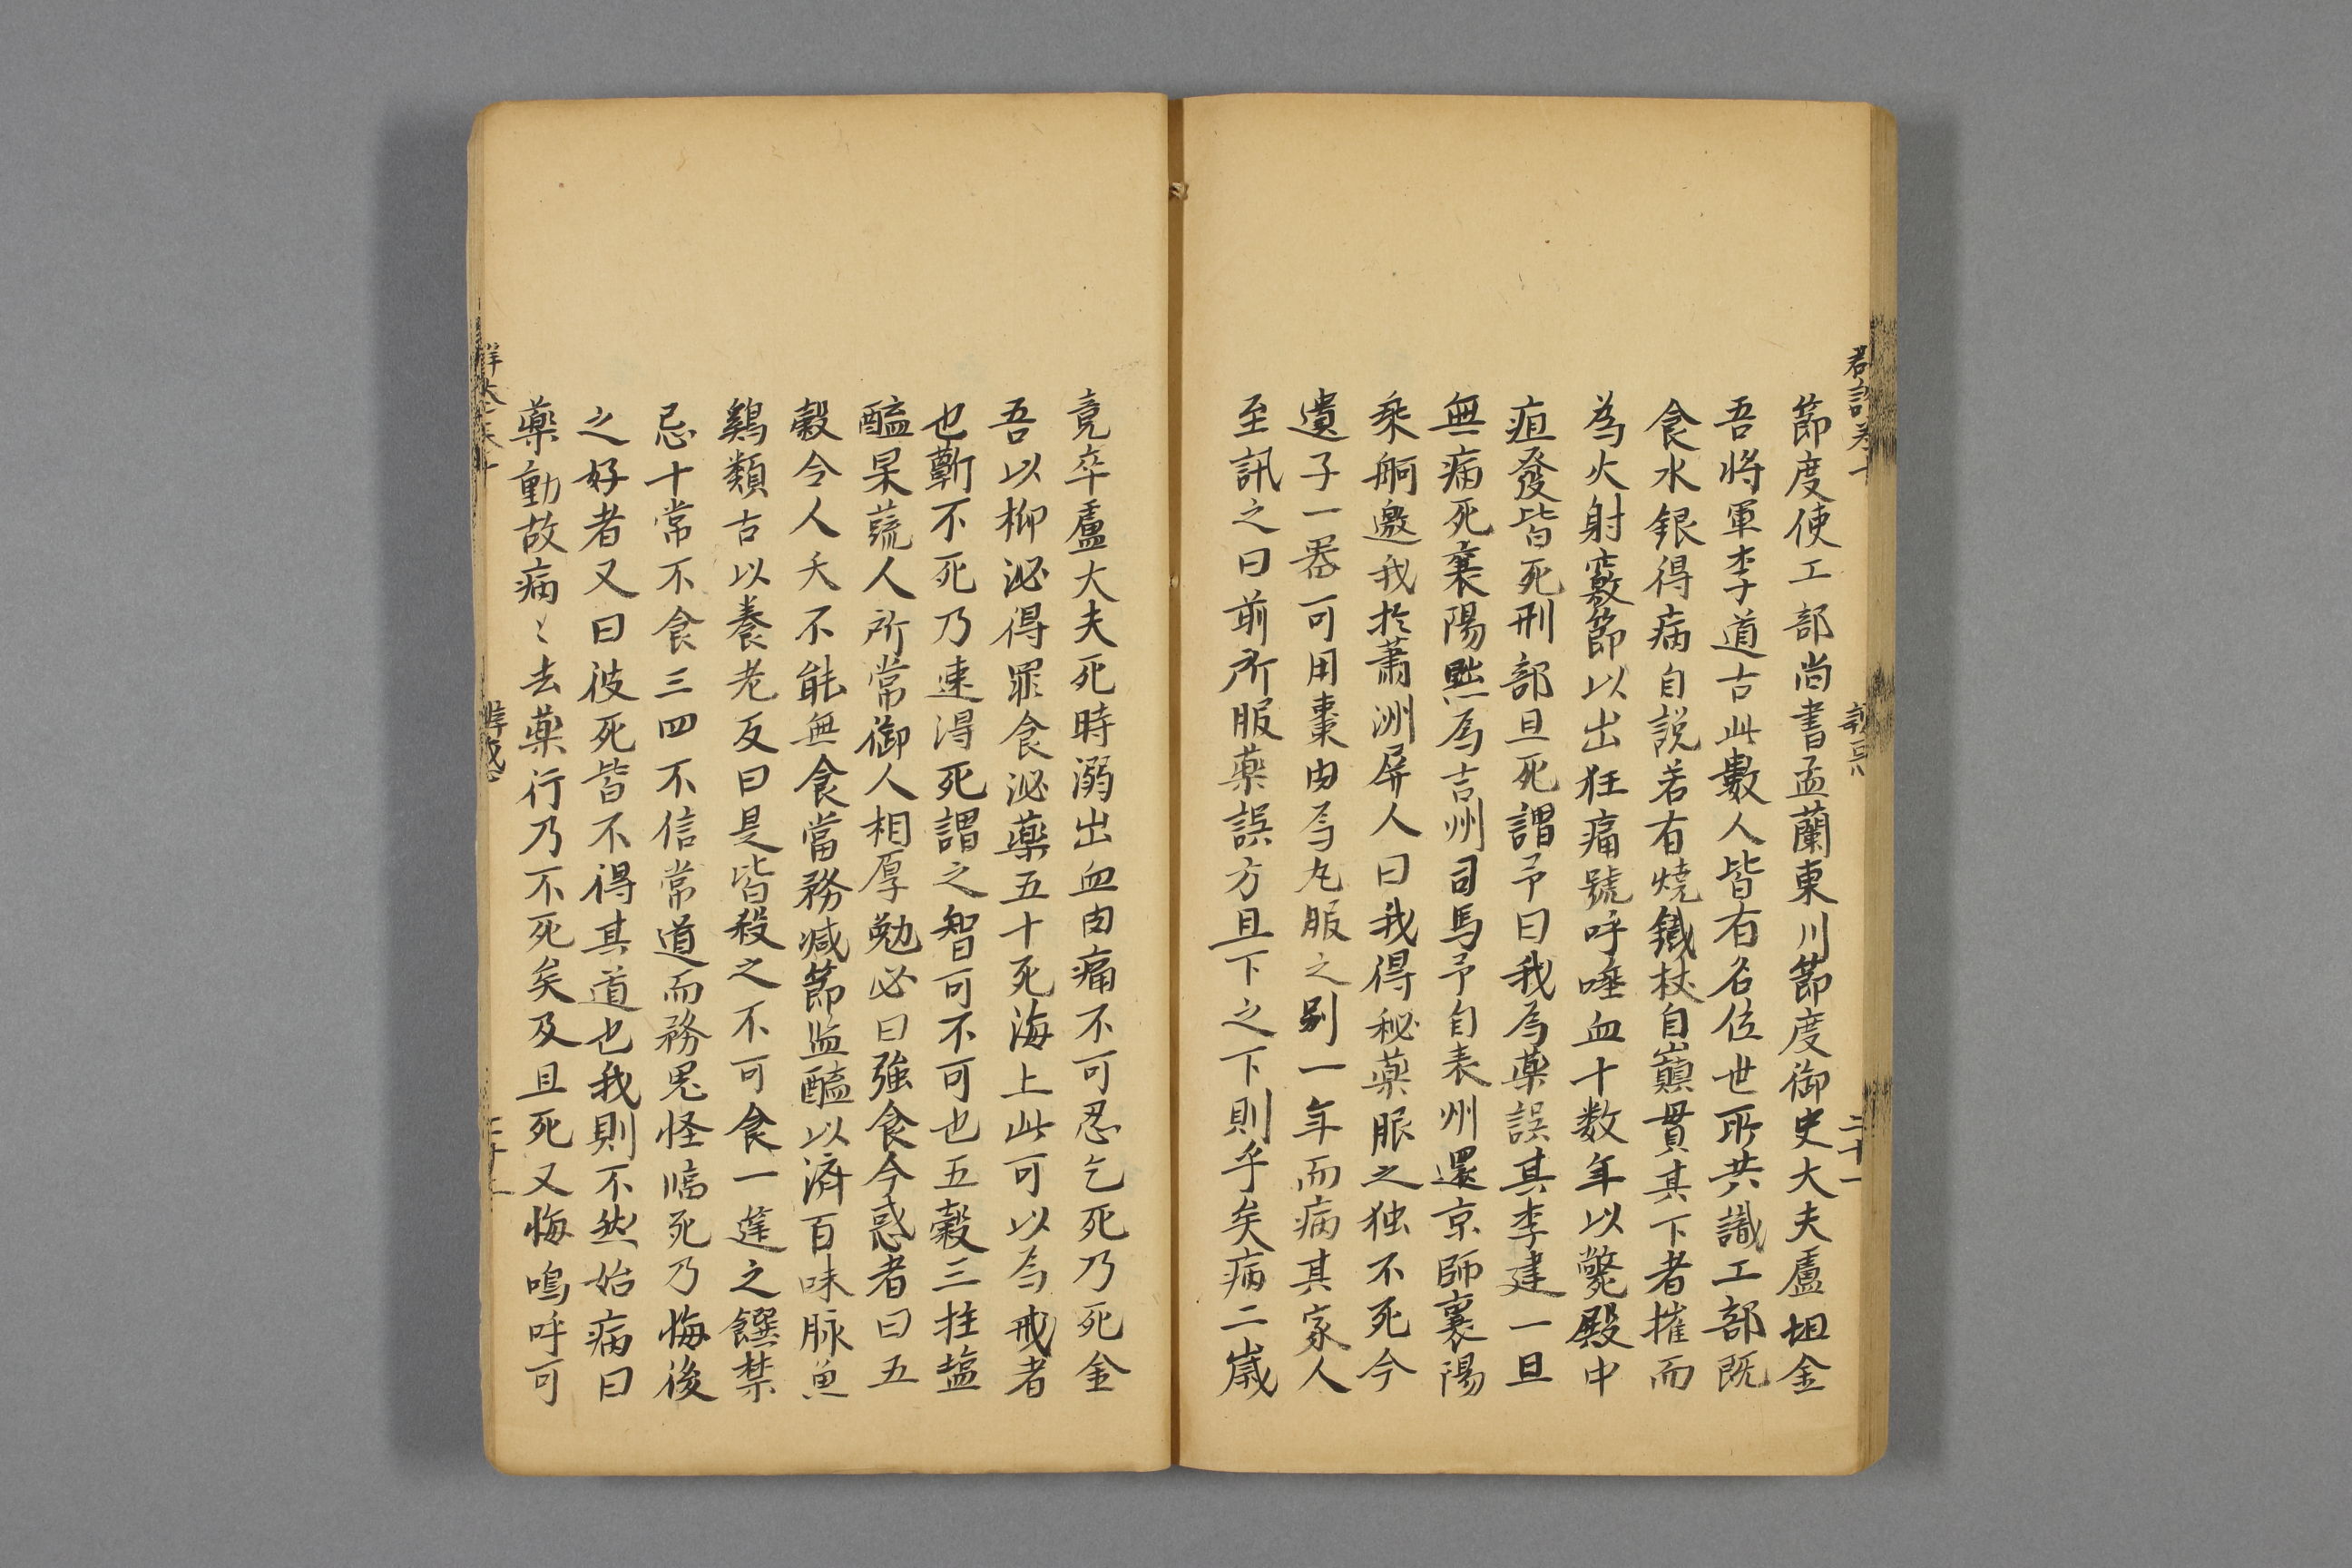 節度使工部尚書孟蘭東川節度御史大夫盧坦金
吾將軍李道古此數人皆有名位世所共識工部既
食水銀得病自說若有燒鐵杖自巔貫其下者摧而
為火射竅節以出狂痛號呼唾血十数年以斃殿中
疽發皆死刑部且死謂予曰我為藥誤其李建一旦
無病死襄陽黜為吉州司馬予自袁州還京師襄陽
乘舸邀我於蕭洲屏人曰我得秘藥服之独不死今
遺子一器可用棗肉為丸服之别一年而病其家人
至訊之曰前所服藥誤方且下之下則乎矣病二歲
竟卒盧大夫死時溺出血肉痛不可忍乞死乃死金
吾以柳泌得罪食泌藥五十死海上此可以為戒者
也蘄不死乃速得死謂之智可不可也五穀三牲塩
醢杲蔬人所常御人相厚勉必曰強食今惑者曰五
穀令人夭不能無食當務減節监醢以濟百味脉魚
鷄類古以養老反曰是皆殺之不可食一莚之饌禁
忌十常不食三四不信常道而務鬼怪臨死乃悔後
之好者又曰彼死皆不得其道也我則不然始病曰
藥動故病〻去藥行乃不死矣及且死又悔嗚呼可